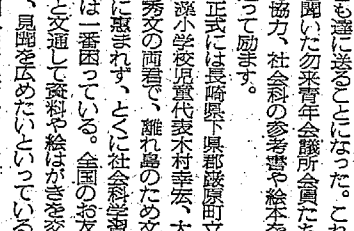 も達に送ることになった。これ
聞いた勿来青年会議所会員たち
協力、社会科の参考書や絵本を
って励ます。
正式には長崎県下県郡厳原町立
小学校児童代表木村幸宏、大
秀文の両君で、離れ島のため文
に恵まれず、とくに社会科学習
は一番困っている。全国のお友
と文通して資料や絵はがきを交
、見聞を広めたいといっている